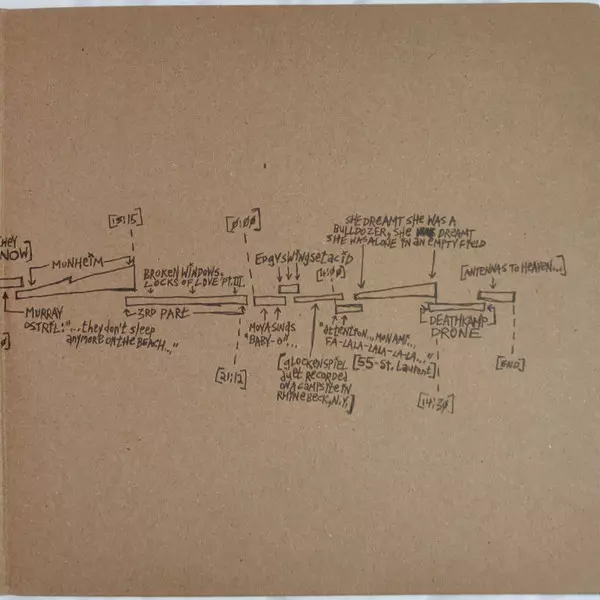 HEY
NOW]
MONHEIM
[13:15]
BROKEN WINDOWS,
LOCKS OF LOVE PT.III.
[0:00]
EdgyswingsetacID
[4:00]
SHE DREAMT SHE WAS A
BULLDOZER, SHE DREAMT
SHE WAS ALONE IN AN EMPTY FIELD
[ANTENNAS TO HEAVEN...]
MURRAY
OSTRIL: "...they don't sleep
anymore on the BEACH..."
3RD PART
[21:12]
MOYA SINGS
"BABY-O"...
[gLOCKENSPIEL
duet RECORDED
ON A CAMPSITE IN
RHINEBECK, N.Y.]
"attention...MON AMI...
FA-LALA-LALA-LA-LA..."
[55-St. Laurent]
DEATHKAMP
DRONE
[14:30]
[END]